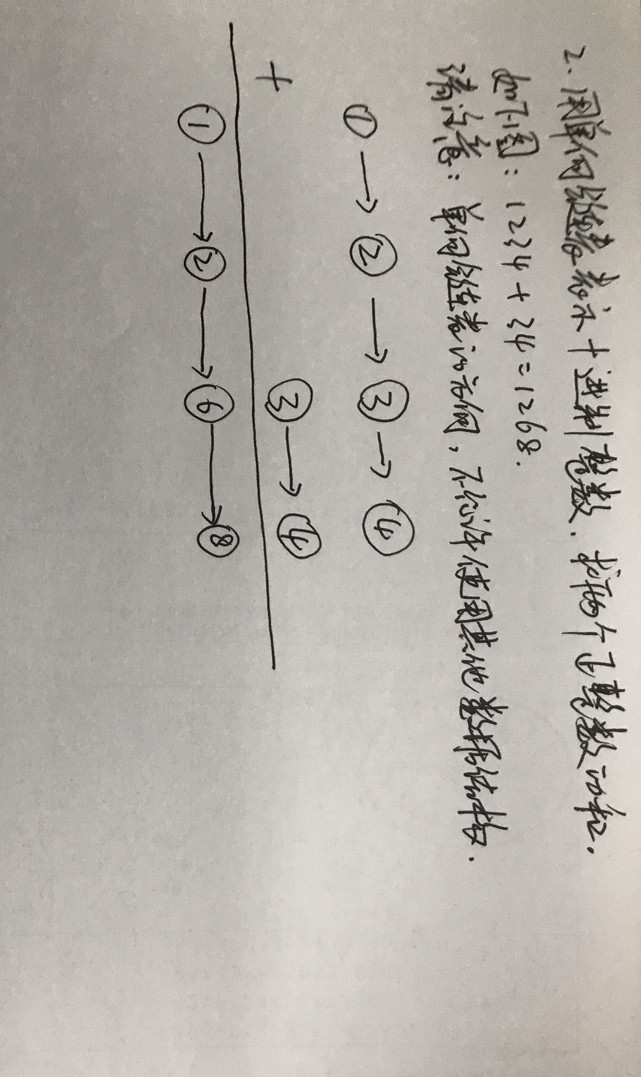 2. 用单向链表表示十进制整数, 求两个正整数的和.
如下图: 1234 + 34 = 1268.
请注意: 单向链表的方向, 不允许使用其他数据结构.
① → ② → ③ → ④
+ ③ → ④
① → ② → ⑥ → ⑧